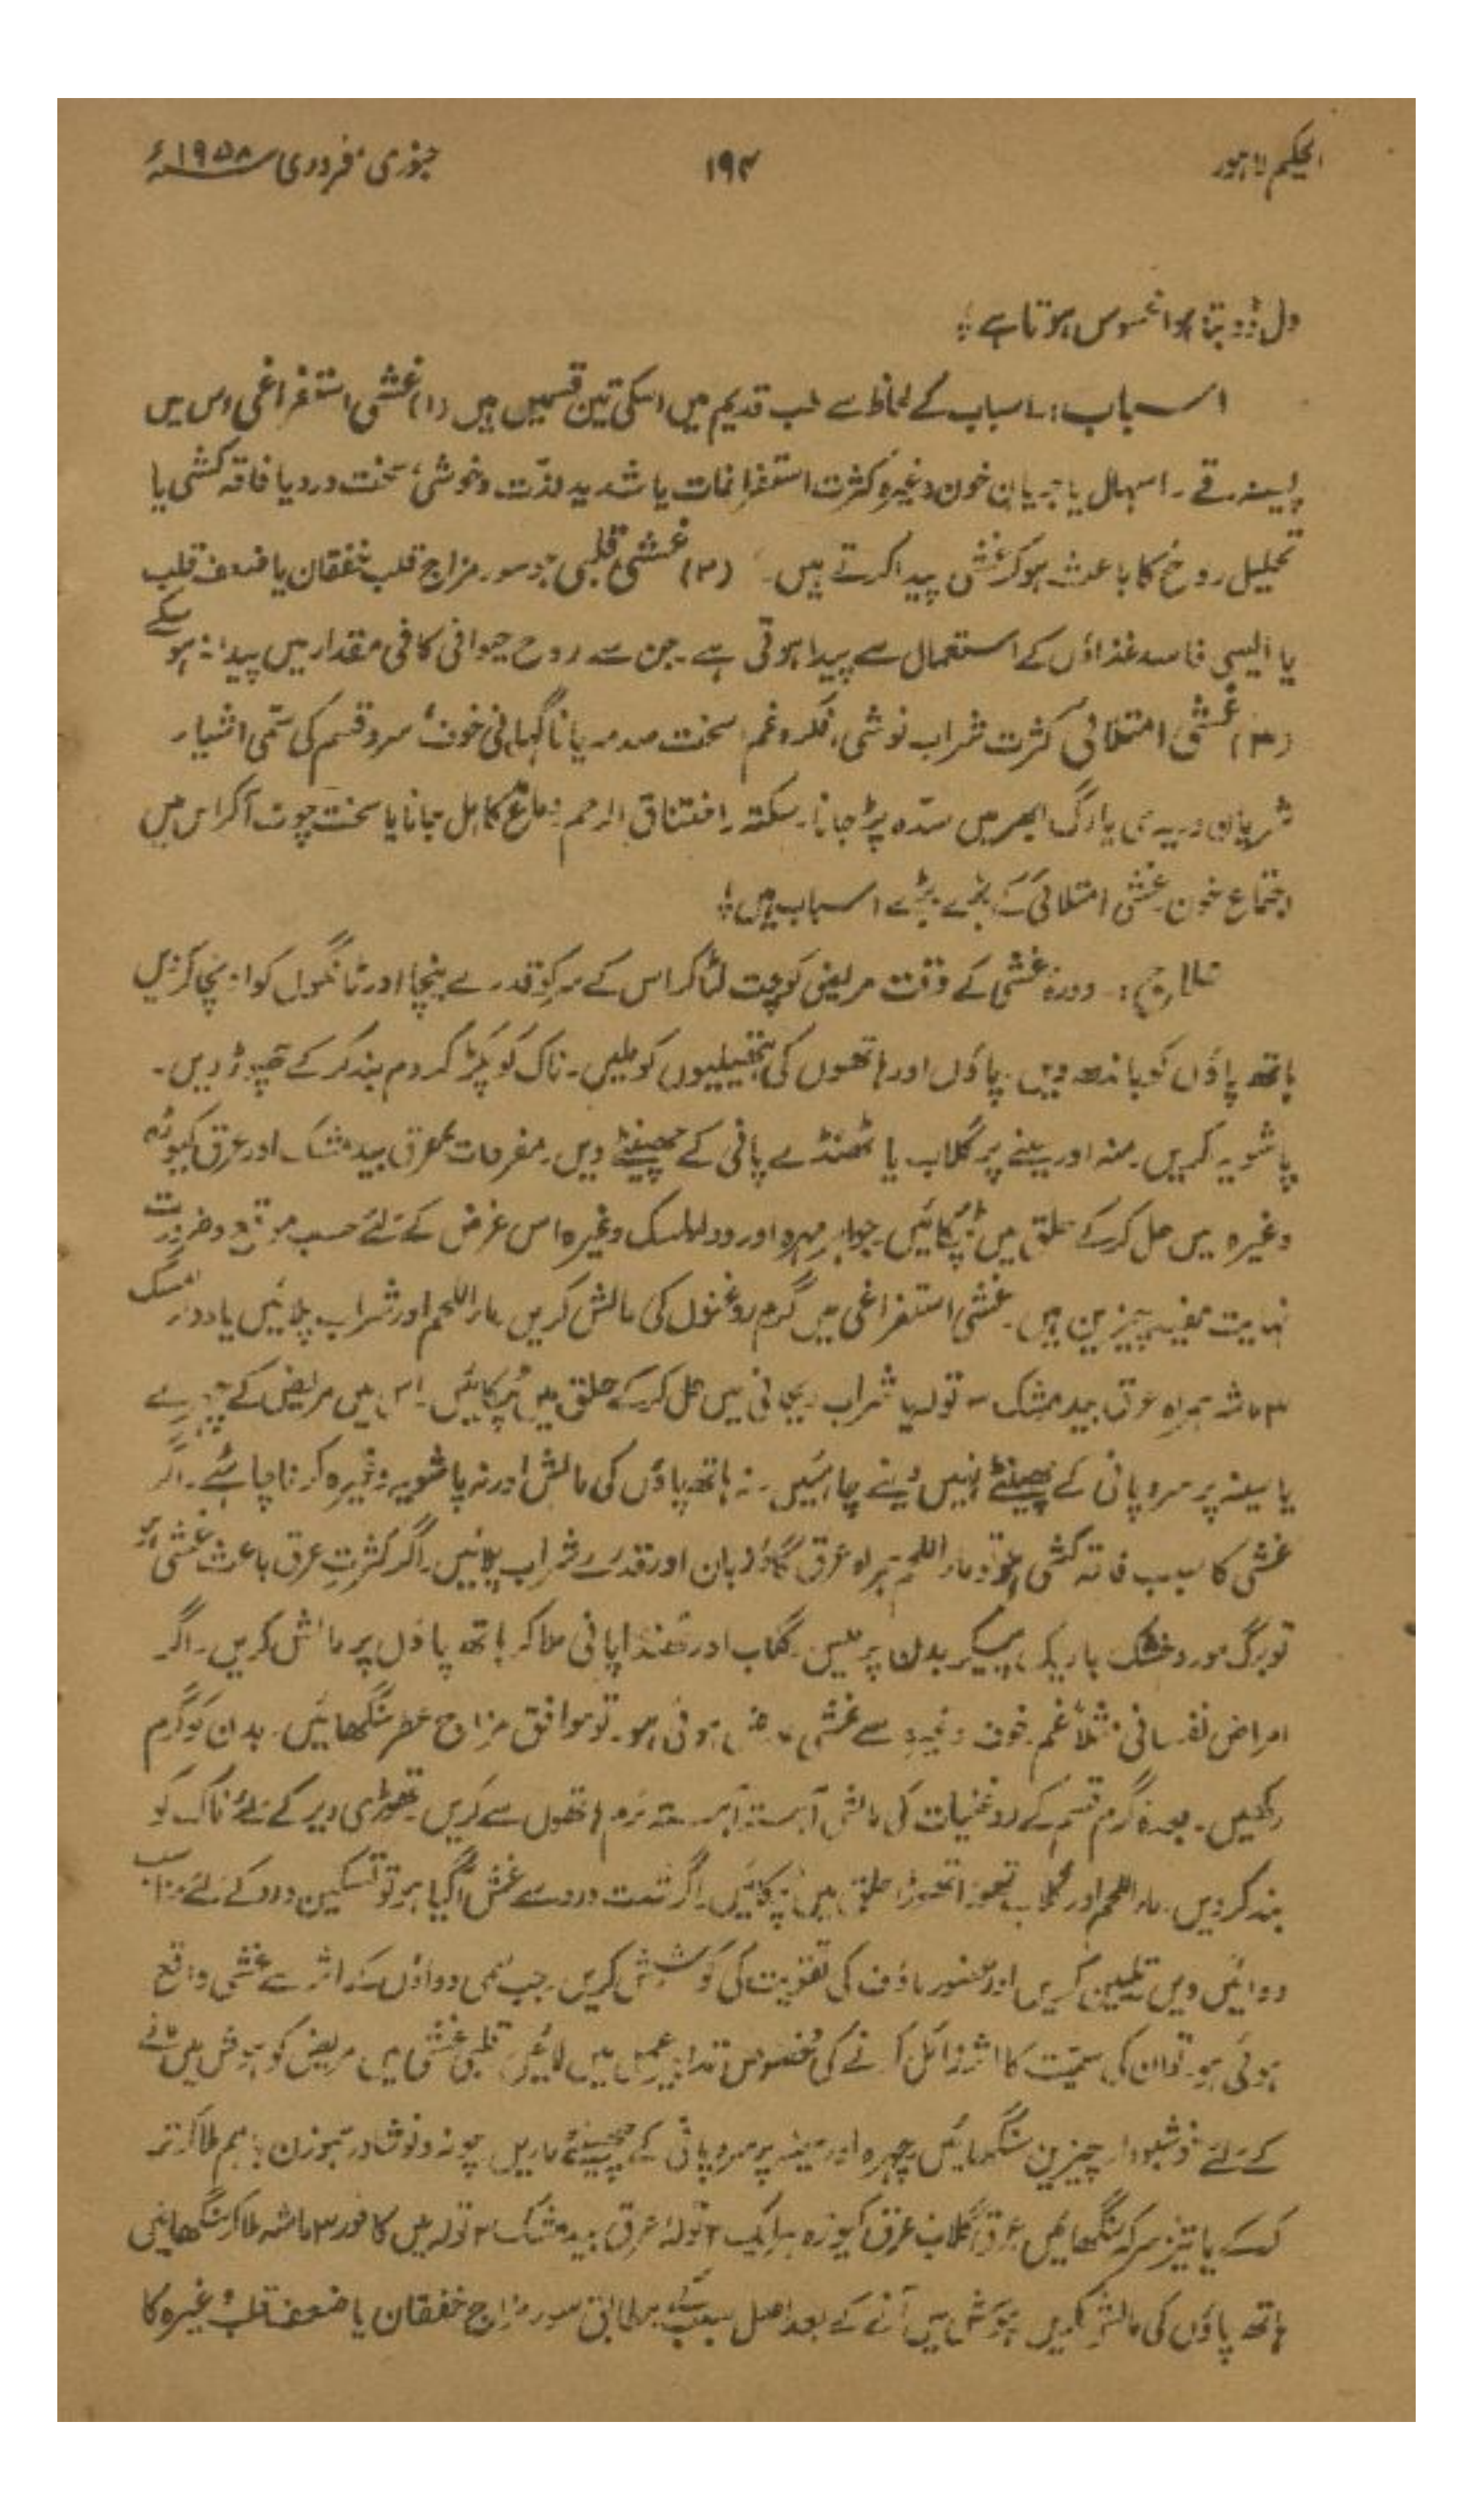 الحکیم لاہور
۱۹۴
جنوری، فروری ۱۹۵۸ء
دل ڈوبتا ہوا محسوس ہوتا ہے؛
اسباب:۔ اسباب کے لحاظ سے طب قدیم میں اسکی تین قسمیں ہیں (۱) غشی استفراغی اس میں
پسینہ۔ قے۔ اسہال یا جریان خون وغیرہ کثرت استفراغات یا شدید لذّت و خوشی، سخت درد یا فاقہ کشی یا
تحلیل روح کا باعث ہو کر غشی پیدا کرتے ہیں۔ (۲) غشی قلبی جو سوء مزاج قلب خفقان یا ضعف قلب
یا ایسی فاسد غذاؤں کے استعمال سے پیدا ہوتی ہے۔ جن سے روح حیوانی کافی مقدار میں پیدا نہ ہو سکے
(۳) غشی امتلائی کثرت شراب نوشی، فکر و غم سخت صدمہ یا ناگہانی خوف، سرد قسم کی سمّی اشیاء
شریان وریدی یا رگ ابھر میں سدّہ پڑ جانا۔ سکتہ۔ اختناق الرحم۔ دماغ کا ہل جانا یا سخت چوٹ آ کر اس میں
اجتماع خون غشی امتلائی کے بڑے بڑے اسباب ہیں؛
علاج:۔ دورہ غشی کے وقت مریض کو چت لٹا کر اس کے سر کو قدرے نیچا اور ٹانگوں کو اونچا کر دیں
ہاتھ پاؤں کو باندھ دیں۔ پاؤں اور ہاتھوں کی ہتھیلیوں کو ملیں۔ ناک کو پکڑ کر دم بند کر کے چھوڑ دیں۔
پاشویہ کریں۔ منہ اور سینے پر گلاب یا ٹھنڈے پانی کے چھینٹے دیں۔ مفرحات عرق بید مشک اور عرق کیوڑہ
وغیرہ میں حل کر کے حلق میں ٹپکائیں۔ جواہر مہرہ اور دوالمسک وغیرہ اس غرض کے لئے حسب موقع و ضرورت
نہایت مفید چیزیں ہیں۔ غشی استفراغی میں گرم روغنوں کی مالش کریں ماء اللحم اور شراب پلائیں یا دواء المسک
۳ ماشہ ہمراہ عرق بید مشک تولہ یا شراب ریحانی میں حل کر کے حلق میں ٹپکائیں۔ اس میں مریض کے چہرے
یا سینہ پر سرد پانی کے چھینٹے نہیں دینے چاہئیں۔ نہ ہاتھ پاؤں کی مالش اور نہ پاشویہ وغیرہ کرنا چاہئے۔ اگر
غشی کا سبب فاقہ کشی ہو تو ماء اللحم ہمراہ عرق گاؤزبان اور قدرے شراب پلائیں۔ اگر کثرتِ عرق باعث غشی ہو
تو برگ مورد خشک باریک پیس کر بدن پر ملیں۔ گلاب اور ٹھنڈا پانی ملا کر ہاتھ پاؤں پر مالش کریں۔ اگر
امراض نفسانی مثلاً غم۔ خوف وغیرہ سے غشی عارض ہوئی ہو۔ تو موافق مزاج عطر سنگھائیں۔ بدن کو گرم
رکھیں۔ بعدہ گرم قسم کے روغنیات کی مالش آہستہ آہستہ نرم ہاتھوں سے کریں۔ تھوڑی دیر کے لئے ناک کو
بند کر دیں۔ ماء اللحم اور گلاب تھوڑا تھوڑا حلق میں ٹپکائیں۔ اگر شدت درد سے غش آ گیا ہو تو تسکین درد کے لئے مناسب
دوائیں دیں تلیین کریں اور عضو ماؤف کی تقویت کی کوشش کریں۔ جب سمی دواؤں کے اثر سے غشی واقع
ہوئی ہو۔ تو ان کی سمّیت کا اثر زائل کرنے کی مخصوص تدابیر عمل میں لائیں۔ قلبی غشی میں مریض کو ہوش میں لانے
کے لئے خوشبودار چیزیں سنگھائیں چہرہ اور سینہ پر سرد پانی کے چھینٹے ماریں۔ چونہ و نوشادر ہموزن باہم ملا کر تر
کر کے یا تیز سرکہ سنگھائیں عرق گلاب عرق کیوڑہ ہر ایک ۲ تولہ عرق بید مشک ۲ تولہ میں کافور ۳ ماشہ ملا کر سنگھائیں
ہاتھ پاؤں کی مالش کریں ہوش میں آنے کے بعد اصل سبب کے مطابق سوء مزاج خفقان یا ضعف قلب وغیرہ کا